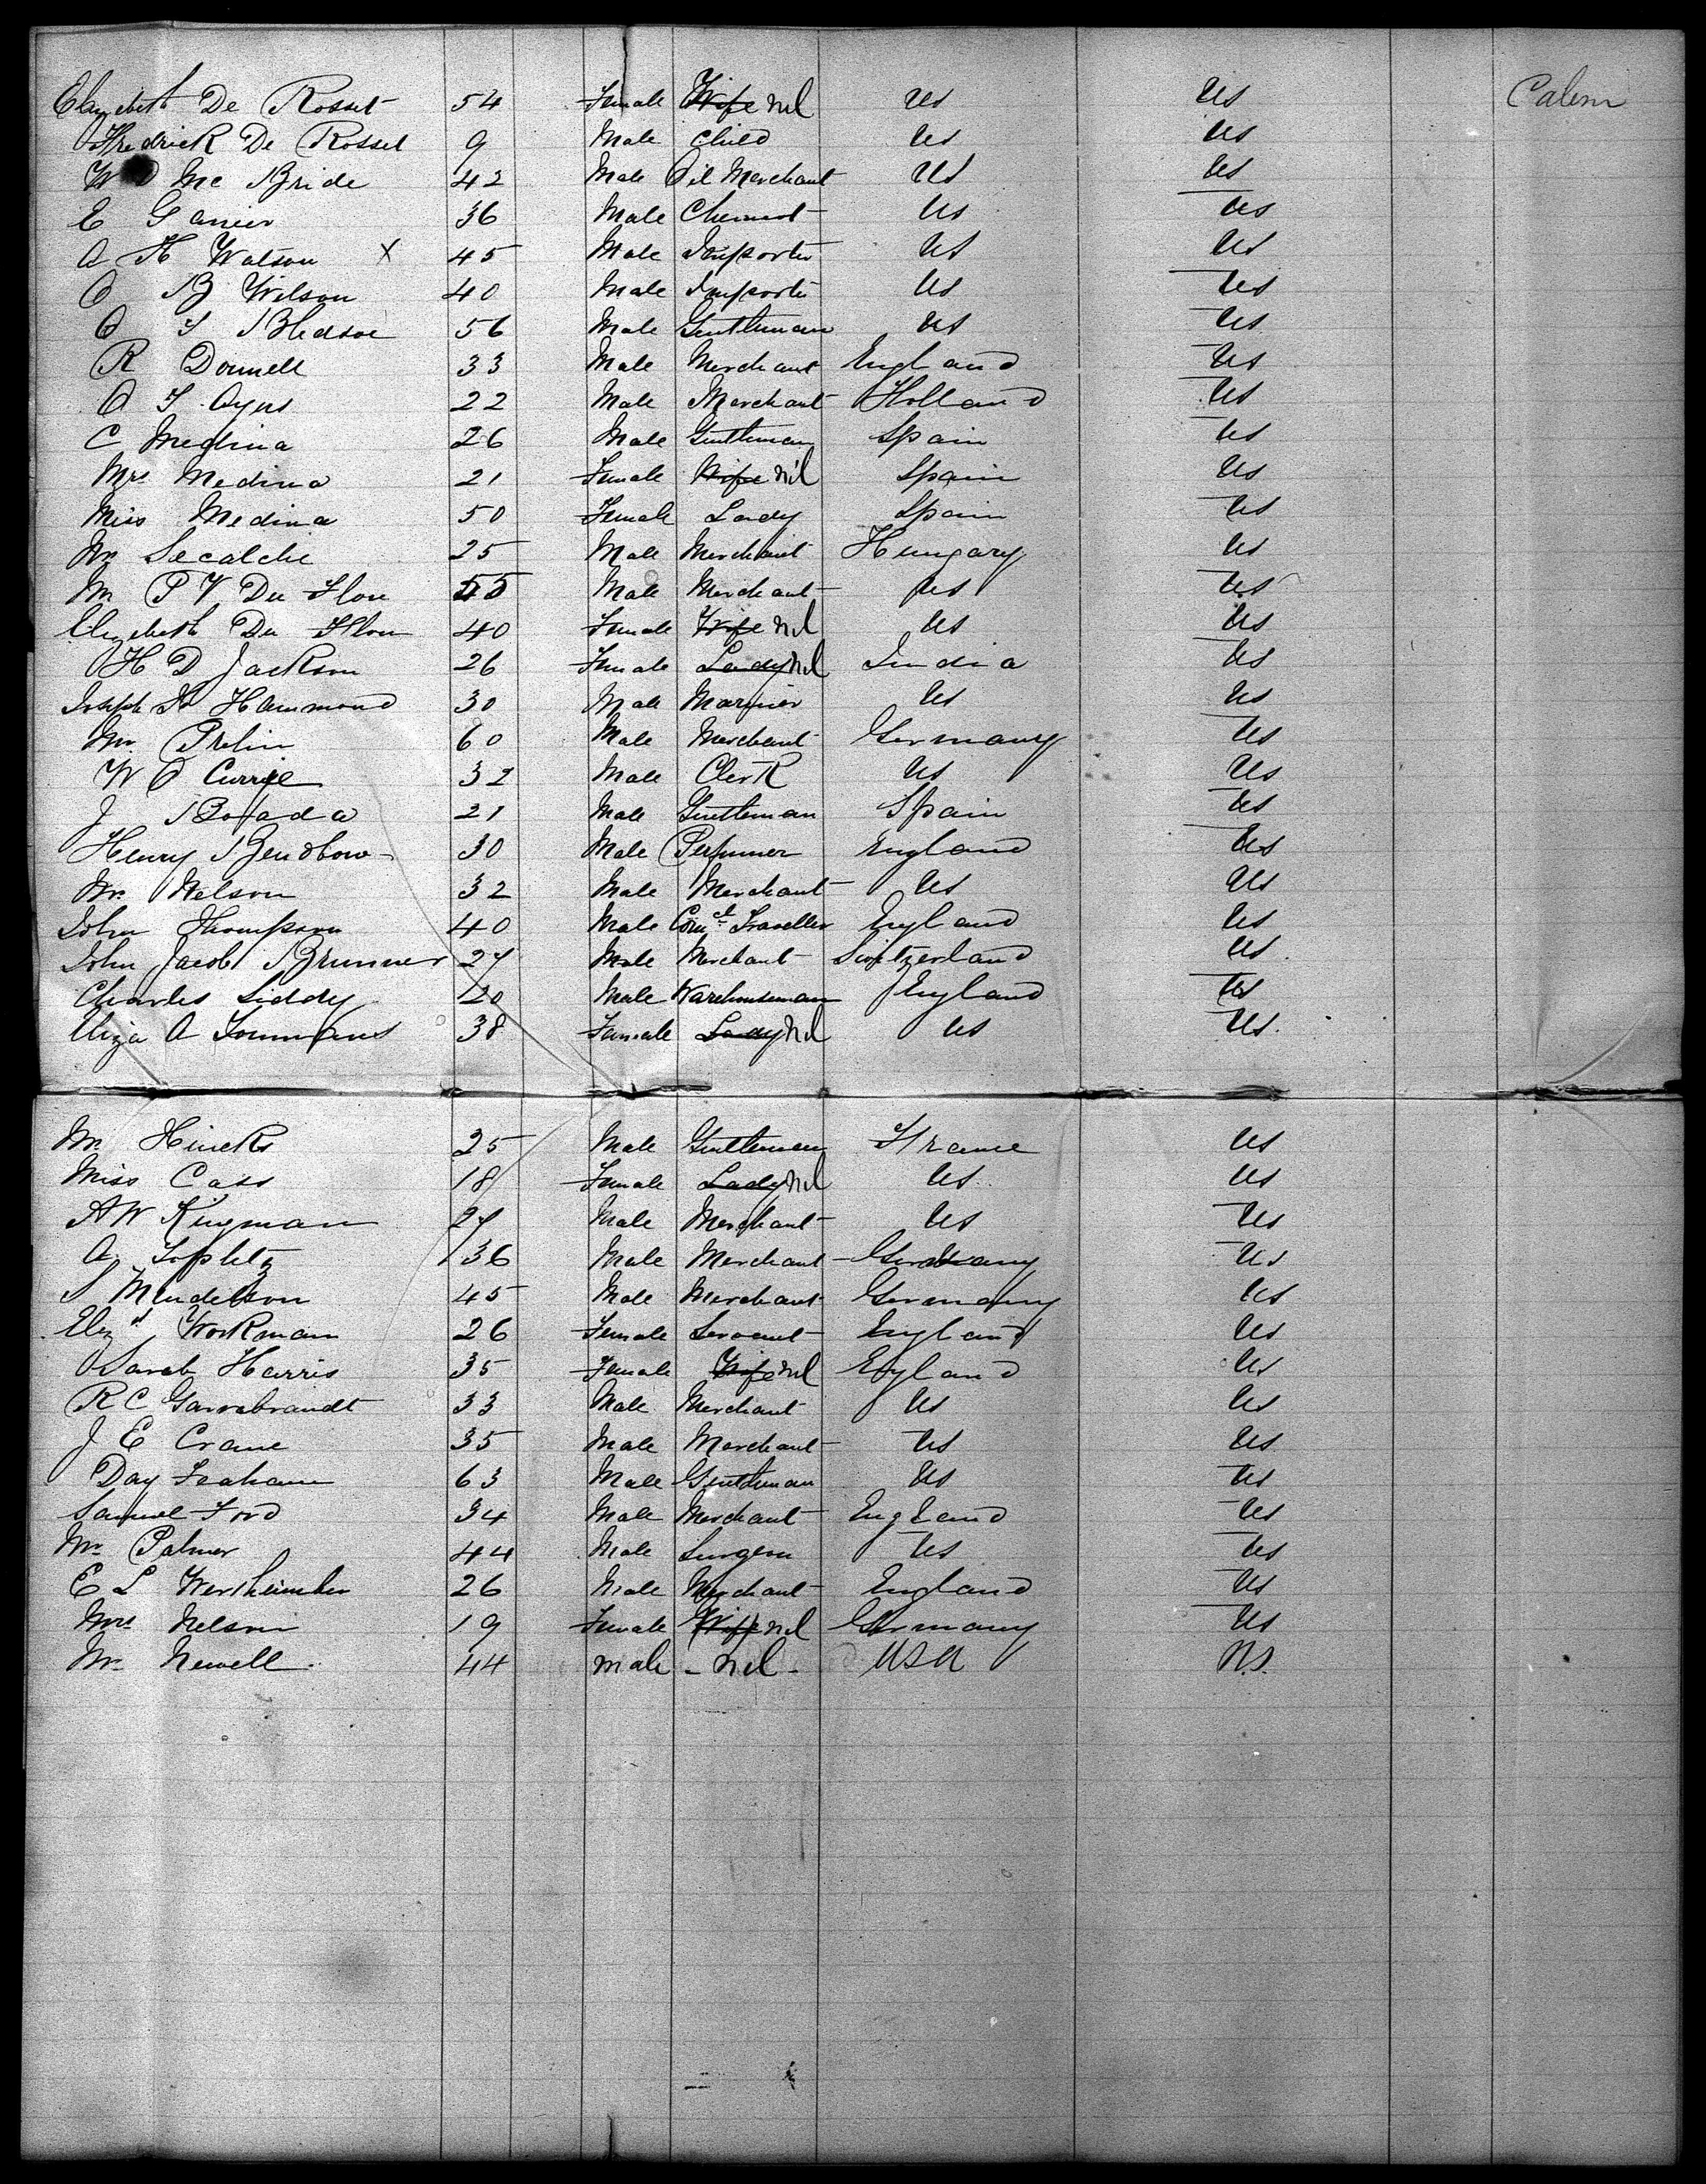 Elizabeth De Rosset 54 Female Wife nil US US Cabin
Fredrick De Rosset 9 Male Child US US
W D Mc Bride 42 Male Oil Merchant US US
E Ganier 36 Male Chemist US US
A H Watson X 45 Male Importer US US
O B Wilson 40 Male Importer US US
O S Bledsoe 56 Male Gentleman US US
R Donnell 33 Male Merchant England US
O S Ayus 22 Male Merchant Holland US
C Medina 26 Male Gentleman Spain US
Mrs Medina 21 Female Wife nil Spain US
Miss Medina 50 Female Lady Spain US
Mr Secalchi 25 Male Merchant Hungary US
Mr P V Du Flon 55 Male Merchant US US
Elizabeth Du Flon 40 Female Wife nil US US
H D Jackson 26 Female Lady nil India US
Joseph H Hammond 30 Male Marinier US US
Mr Prelin 60 Male Merchant Germany US
W O Currie 32 Male Clerk US US
J Bofada 21 Male Gentleman Spain US
Henry Bendbow 30 Male Perfumer England US
Mr Nelson 32 Male Merchant US US
John Thompson 40 Male Comcl Traveller England US
John Jacob Brunner 27 Male Merchant Switzerland US
Charles Liddy 20 Male Warehouseman England US
Eliza A 38 Female Lady nil US US
Mr Hincks 25 Male Gentleman France US
Miss Cass 18 Female Lady nil US US
A W Kingman 27 Male Merchant US US
A Toplitz 36 Male Merchant Germany US
S Mendelson 45 Male Merchant Germany US
Elizth Workman 26 Female Servant England US
Sarah Harris 35 Female Wife nil England US
R C Garrabrandt 33 Male Merchant US US
J E Crane 35 Male Merchant US US
Day 63 Male Gentleman US US
Samuel Ford 34 Male Merchant England US
Mr Palmer 44 Male Surgeon US US
E L Wertheimber 26 Male Merchant England US
Mrs Nelson 19 Female Wife nil Germany US
Mr Newell 44 male - nil - USA U.S.